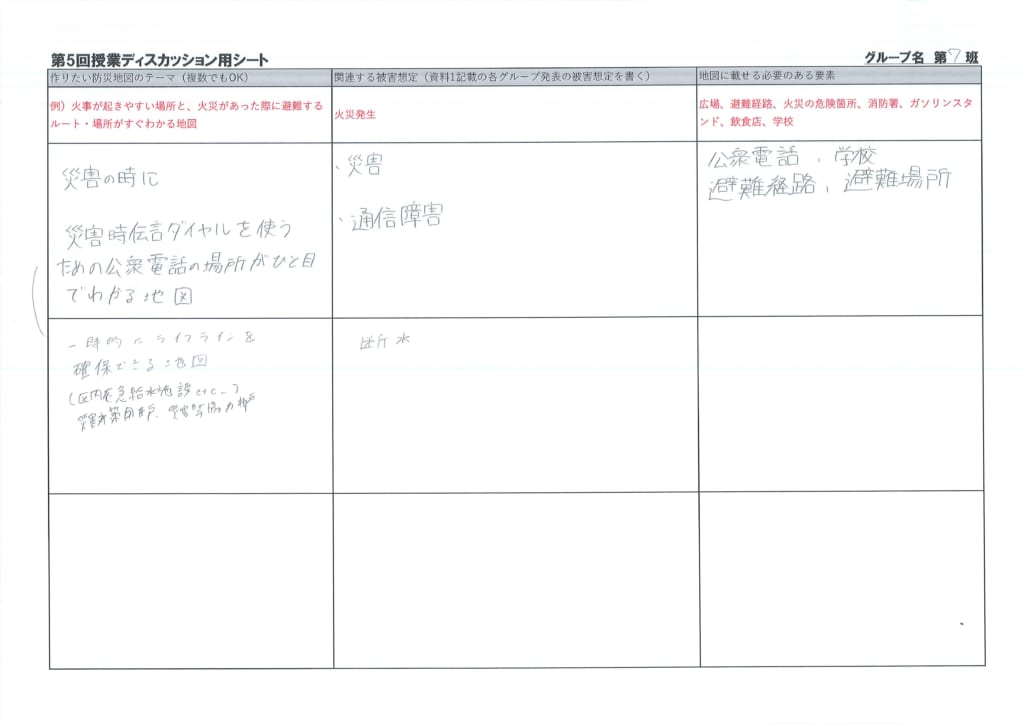 第5回授業ディスカッション用シート
グループ名 第7班
作りたい防災地図のテーマ（複数でもOK）
関連する被害想定（資料1記載の各グループ発表の被害想定を書く）
地図に載せる必要のある要素
例）火事が起きやすい場所と、火災があった際に避難する
ルート・場所がすぐわかる地図
火災発生
広場、避難経路、火災の危険箇所、消防署、ガソリンスタ
ンド、飲食店、学校
災害の時に
災害時伝言ダイヤルを使う
ための公衆電話の場所がひと目
でわかる地図
・災害
・通信障害
公衆電話、学校
避難経路、避難場所
一時的にライフラインを
確保できる地図
(区内応急給水施設etc..)
災害時協力井戸
断水